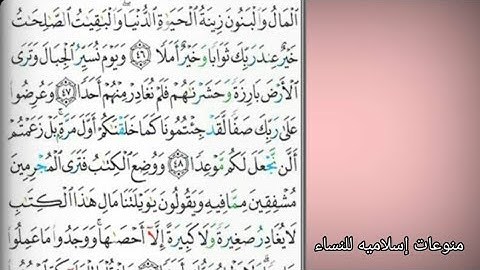 ٱلْمَالُ وَٱلْبَنُونَ زِينَةُ ٱلْحَيَوٰةِ ٱلدُّنْيَا ۖ وَٱلْبَٰقِيَٰتُ ٱلصَّٰلِحَٰتُ
خَيْرٌ عِندَ رَبِّكَ ثَوَابًا وَخَيْرٌ أَمَلًا ٤٦ وَيَوْمَ نُسَيِّرُ ٱلْجِبَالَ وَتَرَى
ٱلْأَرْضَ بَارِزَةً وَحَشَرْنَٰهُمْ فَلَمْ نُغَادِرْ مِنْهُمْ أَحَدًا ٤٧ وَعُرِضُوا۟
عَلَىٰ رَبِّكَ صَفًّا لَّقَدْ جِئْتُمُونَا كَمَا خَلَقْنَٰكُمْ أَوَّلَ مَرَّةٍۭ ۚ بَلْ زَعَمْتُمْ
أَلَّن نَّجْعَلَ لَكُم مَّوْعِدًا ٤٨ وَوُضِعَ ٱلْكِتَٰبُ فَتَرَى ٱلْمُجْرِمِينَ
مُشْفِقِينَ مِمَّا فِيهِ وَيَقُولُونَ يَٰوَيْلَتَنَا مَالِ هَٰذَا ٱلْكِتَٰبِ
لَا يُغَادِرُ صَغِيرَةً وَلَا كَبِيرَةً إِلَّآ أَحْصَىٰهَا ۚ وَوَجَدُوا۟ مَا عَمِلُوا۟
منوعات إسلاميه للنساء